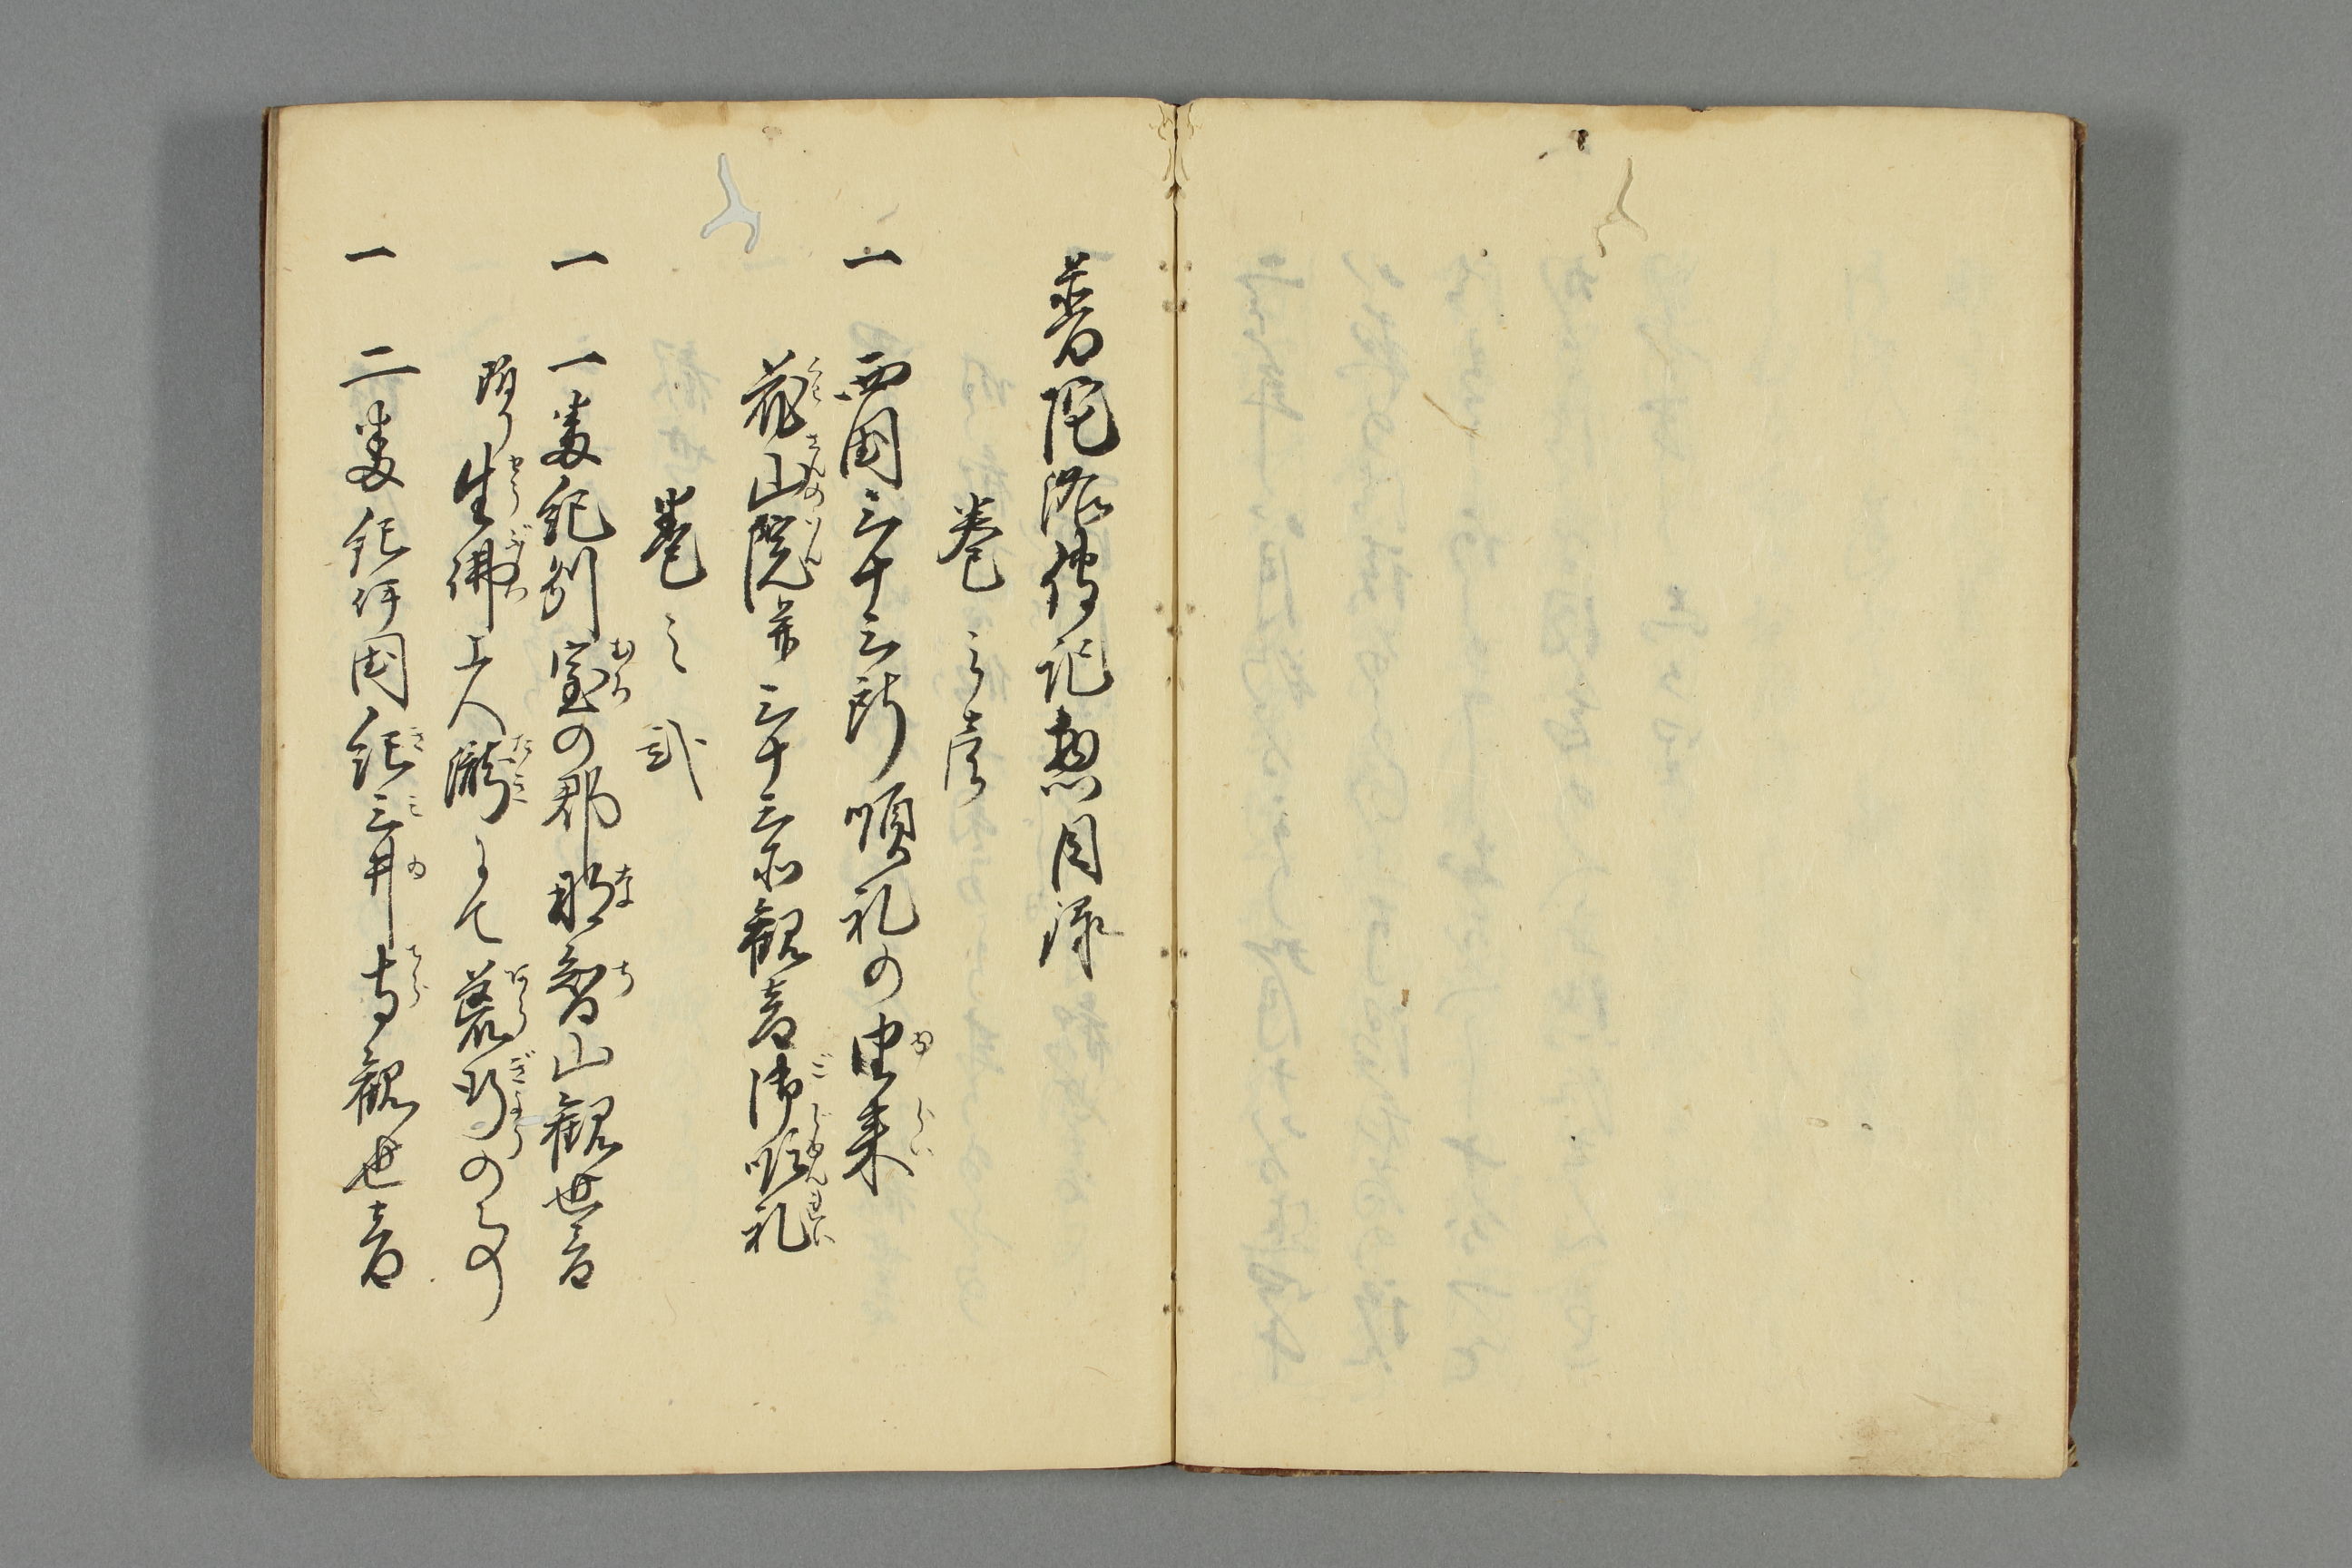 普陀洛傳記惣目録
巻之壹
一 西国三十三所順礼の由来
花山院并三十三所観音御順礼
巻之弐
一 一番紀州室の郡那智山観世音
附り生佛上人瀧にて荒行の事
一 二番紀伊国紀三井寺観世音